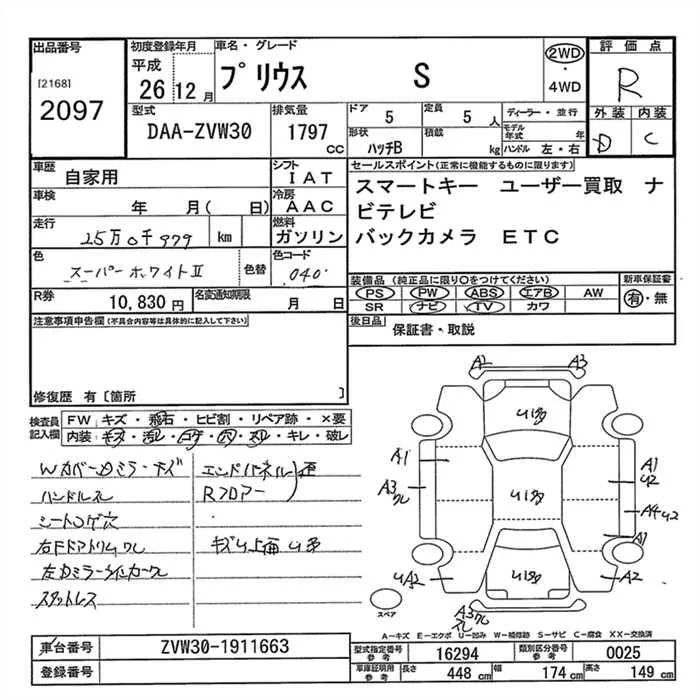 出品番号
[2168]
2097
初度登録年月
平成
26 12月
車名・グレード
プリウス S
2WD
・
4WD
評価点
R
外装 内装
D C
型式
DAA-ZVW30
排気量
1797 CC
ドア 5
定員 5 人
ディーラー・並行
形状 ハッチB
積載 kg
モデル年式 年
ハンドル 左・右
車歴
自家用
シフト
IAT
冷房
AAC
燃料
ガソリン
車検
年 月( 日)
走行
25万0千979 km
色
スーパーホワイトⅡ
色替
色コード
040
R券
10,830 円
名変通知期限
月 日
セールスポイント(正常に機能するものに限ります)
スマートキー ユーザー買取 ナ
ビテレビ
バックカメラ ETC
装備品(純正品に限り○をつけてください)
PS PW ABS エアB AW
SR ナビ TV カワ
新車保証書
有・無
後日品
保証書・取説
注意事項申告欄(不具合内容等は具体的に記入して下さい)
修復歴 有[箇所 ]
検査員
記入欄
FW キズ・飛石・ヒビ割・リペア跡・×要
内装:キズ・汚レ・コゲ・穴・スレ・キレ・破レ
ハンドルスレ
シートコゲ穴
スタットレス
エンドパネル
Rフロアー
歪
A2 A3
A1
A3
A1
U2
A4 U2
A1
UA2
A2
A3
スペア
A-キズ E-エクボ U-凹み W-補修跡 S-サビ C-腐食 XX-交換済
車台番号
ZVW30-1911663
登録番号
型式指定番号
参考
16294
類別区分番号
参考
0025
車庫証明用
参考
長さ 448 cm
幅 174 cm
高さ 149 cm